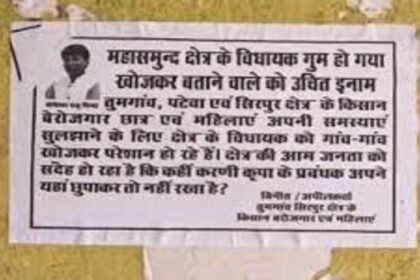 महासमुन्द क्षेत्र के विधायक गुम हो गया
खोजकर बताने वाले को उचित इनाम
तुमगांव, पटेवा एवं सिरपुर क्षेत्र के किसान
बेरोजगार छात्र एवं महिलाएं अपनी समस्याएं
सुलझाने के लिए क्षेत्र के विधायक को गांव-गांव
खोजकर परेशान हो रहे हैं। क्षेत्र की आम जनता को
संदेह हो रहा है कि कहीं करणी कृपा के प्रबंधक अपने
यहां छुपाकर तो नहीं रखा है?
विनीत / अपीलकर्ता
तुमगांव सिरपुर क्षेत्र के
किसान बरोजगार एवं महिलाएं